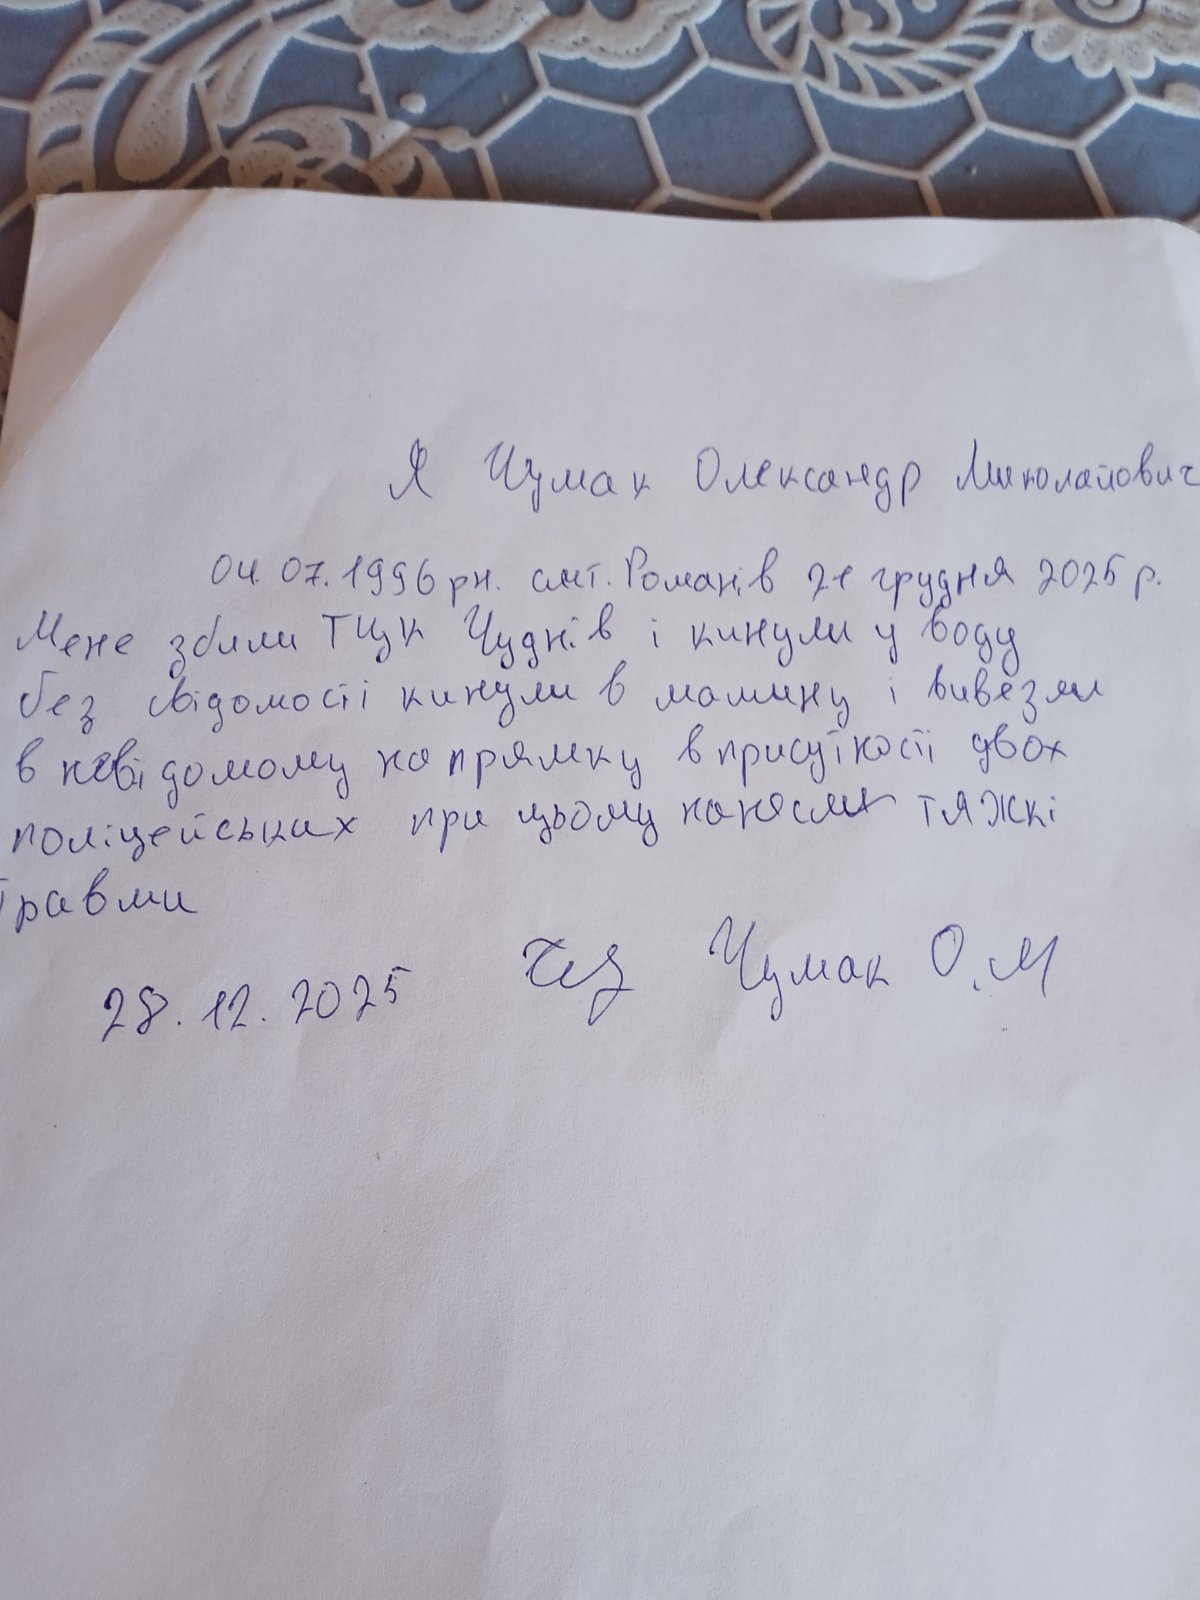 Я Чумак Олександр Миколайович
04.07.1996 рн. смт. Романів 21 грудня 2025 р.
Мене збили ТЦК Чуднів і кинули у воду
без свідомості кинули в машину і вивезли
в невідомому напрямку в присутності двох
поліцейських при цьому нанесли тяжкі
травми
28.12.2025 Чумак О.М